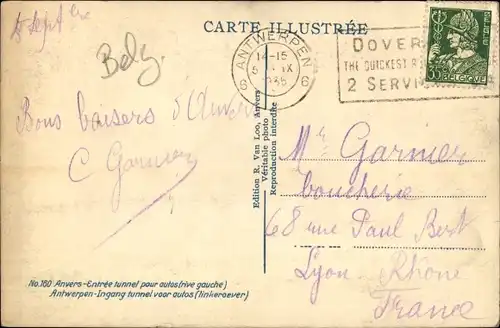 CARTE ILLUSTRÉE
5 Sept
Belg.
Bons baisers d'Anvers
C Garnier
ANTWERPEN
14-15
5 IX
1935
6 6
DOVER
THE QUICKEST
2 SERVI
35
BELGIQUE
Edition R. Van Loo, Anvers
Véritable photo
Reproduction interdite
Mr Garnier
boucherie
68 rue Paul Bert
Lyon. Rhône
France
No.160 Anvers-Entrée tunnel pour autos (rive gauche)
Antwerpen-Ingang tunnel voor autos (linkeroever)